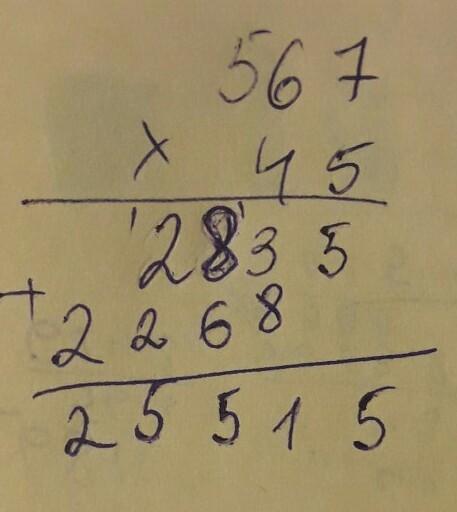 567
× 45
2835
+ 2268
25515